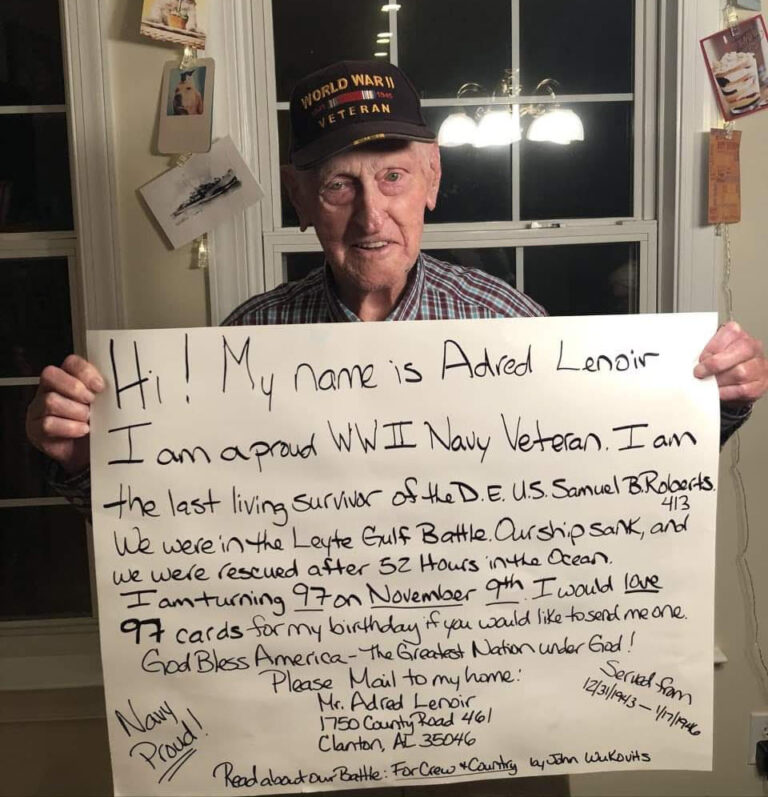 WORLD WAR II
VETERAN
Hi! My name is Adred Lenoir
I am a proud WWII Navy Veteran. I am
the last living survivor of the D.E. U.S. Samuel B. Roberts.
413
We were in the Leyte Gulf Battle. Our ship sank, and
we were rescued after 52 Hours in the Ocean.
I am turning 97 on November 9th. I would love
97 cards for my birthday if you would like to send me one.
God Bless America - The Greatest Nation under God!
Please Mail to my home:
Mr. Adred Lenoir
1750 County Road 461
Clanton, AL 35046
Served from
12/31/1943 - 1/17/1946
Navy
Proud!
Read about our Battle: For Crew + Country by John Wukovits